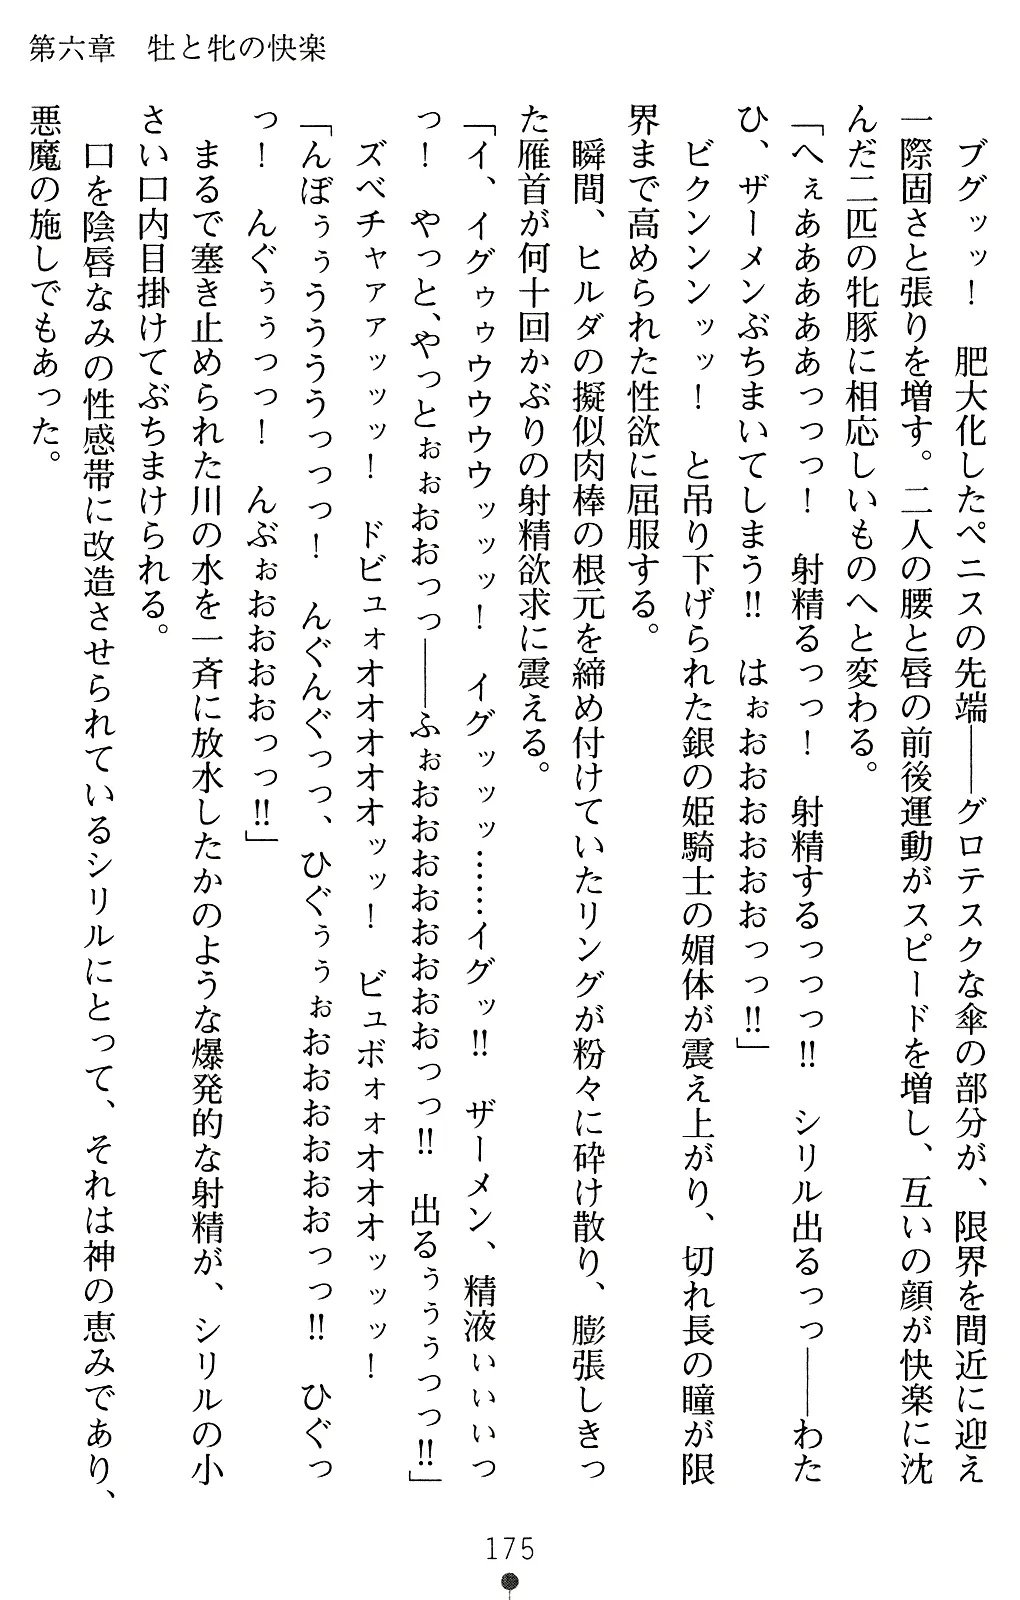 第六章　牡と牝の快楽
　ブグッッ！　肥大化したペニスの先端――グロテスクな傘の部分が、限界を間近に迎え
一際固さと張りを増す。二人の腰と唇の前後運動がスピードを増し、互いの顔が快楽に沈
んだ二匹の牝豚に相応しいものへと変わる。
「へぇああああぁっっっ！　射精るっっ！　射精するっっっ‼　シリル出るっっ――わた
ひ、ザーメンぶちまいてしまう‼　はぉおおおおおっっ‼」
　ビクンンンッッ！　と吊り下げられた銀の姫騎士の媚体が震え上がり、切れ長の瞳が限
界まで高められた性欲に屈服する。
　瞬間、ヒルダの擬似肉棒の根元を締め付けていたリングが粉々に砕け散り、膨張しきっ
た雁首が何十回かぶりの射精欲求に震える。
「イ、イグゥゥウウウウッッッ！　イグッッッ……イグッ‼　ザーメン、精液ぃぃぃぃっ
っ！　やっと、やっとぉぉおおっっ――ふぉおおおおおおおおっっ‼　出るぅぅぅっっ‼」
　ズベチャァァッッッ！　ドビュォオオオオオッッ！　ビュボォォオオオッッッ！
「んぼぅぅうううううっっっ！　んぐんぐっっ、ひぐぅぅぉおおおおおおっっ‼　ひぐっ
っ！　んぐぅぅっっ！　んぶぉぉおおおおっっ‼」
　まるで塞き止められた川の水を一斉に放水したかのような爆発的な射精が、シリルの小
さい口内目掛けてぶちまけられる。
　口を陰唇なみの性感帯に改造させられているシリルにとって、それは神の恵みであり、
悪魔の施しでもあった。
175